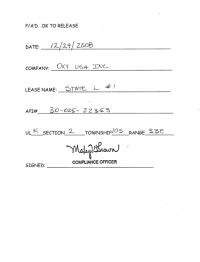 P/A'D. OK TO RELEASE
DATE: 12/29/2008
COMPANY: OXY USA INC.
LEASE NAME: STATE L #1
API# 30-025-22363
UL K SECTION 2 TOWNSHIP 10S RANGE 33E
COMPLIANCE OFFICER
SIGNED: